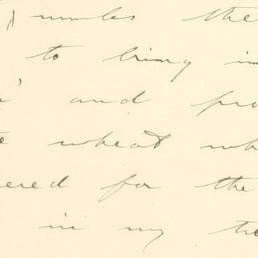 the
to bring in
and pro
wheat wh
ered for the
in my tr